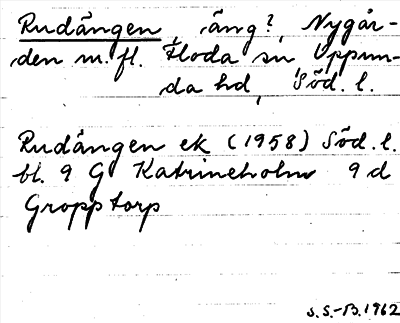 Rudängen, äng?, Nygår-
den m.fl. Floda sn, Oppun-
da hd, Söd. l.
Rudängen ek (1958) Söd. l.
bl. 9 G Katrineholm 9 d
Gropptorp
S.S.-B. 1962